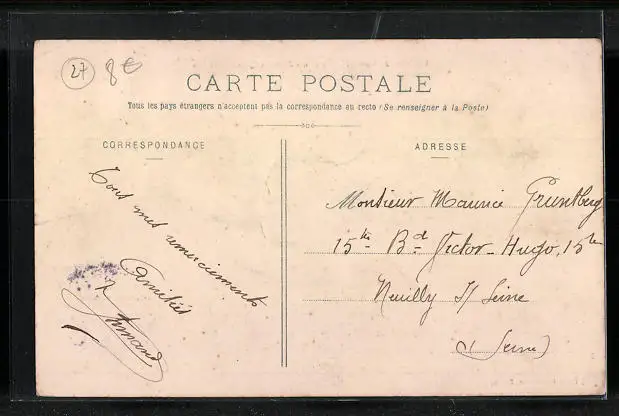 27 8€
CARTE POSTALE
Tous les pays étrangers n'acceptent pas la correspondance au recto (Se renseigner à la Poste)
CORRESPONDANCE
ADRESSE
Tous mes remerciements
Amitiés
Monsieur Maurice Gruntberg
15 bis Bd Victor-Hugo, 15 bis
Neuilly s/ Seine
(Seine)